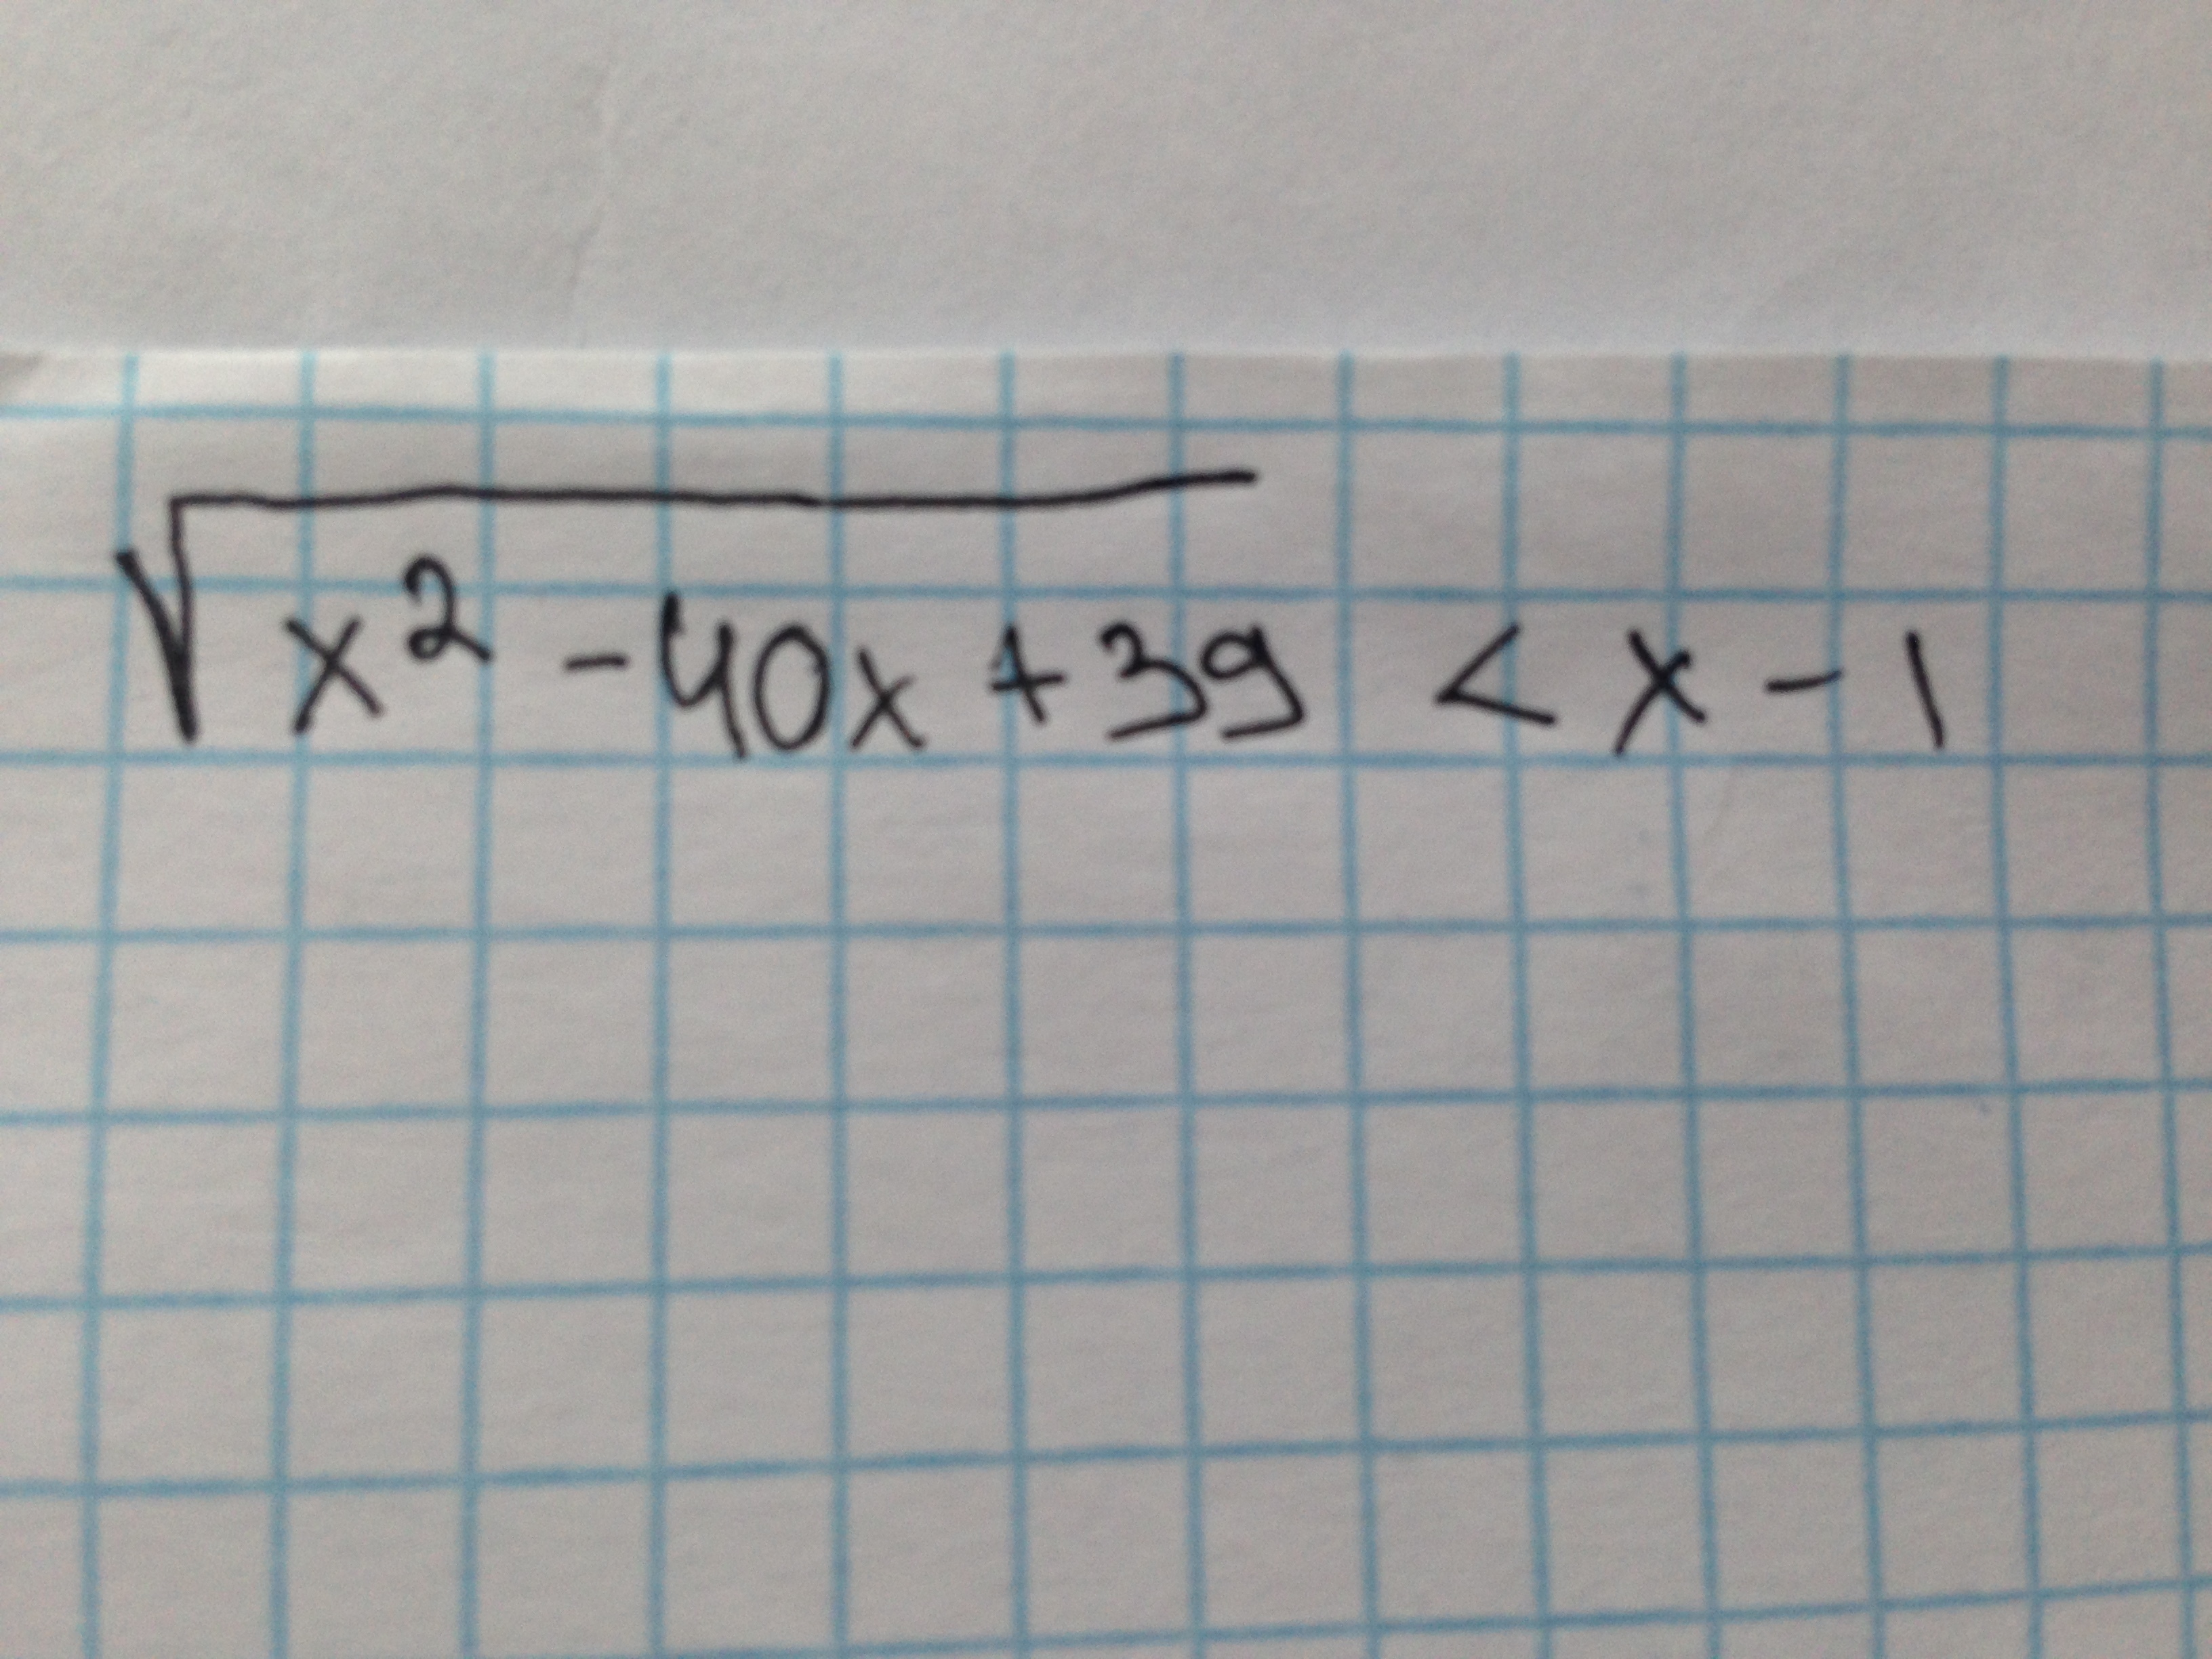 √(x² - 40x + 39) < x - 1